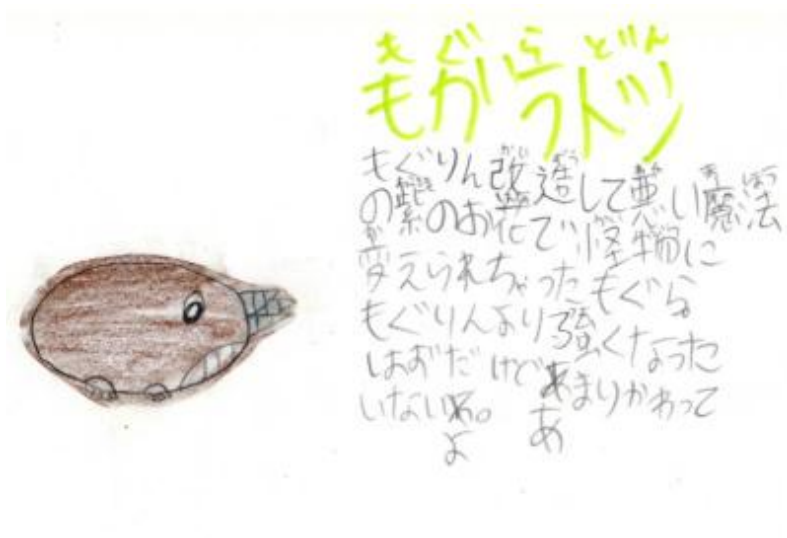 もぐらどん
もグラドン
もぐりん改造して悪い魔法
の紫のお花で怪物に
変えられちゃったもぐら
もぐりんより強くなった
はずだけどあまりかわって
いないわ。
よ あ